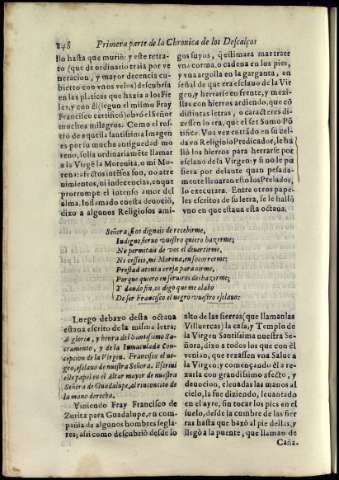 248 Primera parte de la Chronica de los Descalços
llo hasta que murió: y este retra-
to (que de ordinario traìa por ve
neracion, y mayor decencia cu-
bierto con vnos velos) descubrìa
en las platicas que hazia a los Fie-
les, y con èl (segun el mismo Fray
Francisco certificò) obrò el Señor
muchos milagros. Como el ros-
tro de aquella santissima Imagen
es por su mucha antiguedad mo
reno, solìa ordinariamẽte llamar
a la Virgẽ la Morenita, o mi Mo-
rena: afectos in
nimientos, ni indecencias, en que
prorrumpe el intenso amor del
alma. Instado con esta deuociõ,
dixo a algunos Religiosos ami-
gos suyos, q̃ estimàra mas traer
vna corona, o cadena en los pies,
y vna argolla en la garganta, en
señal de que era esclauo de la Vir
gen, y herrarse en frente, y mexi-
llas con hierros ardiendo, que cõ
distintas letras, o caracteres di-
xessen lo era, que el ser Sumo Põ
tifice. Vna vez entrado en su cel-
da vn Religioso Predicador, le ha
llò los hierros para herrarse por
esclauo de la Virgen: y si no le pu
siera por delante quan pesada-
mente lleuarian esto los Prelados,
lo executàra. Entre otros pape-
les escritos de su letra, se le hallò
vno en que estaua esta octaua.
Señora, si os dignais de recebirme,
Indigno sieruo vuestro quiero hazerme;
No permitais de vos el diuertirme,
No cesseis, mi Morena, en socorrerme;
Prestad atenta oreja para oirme,
Porque quiero en seruiros deshazerme;
Y dando fin, os digo que me alabo
De ser Francisco el negro vuestro esclauo:
Luego debaxo desta octaua
estaua escrito de la misma letra;
A gloria, y honra del Santissimo Sa-
cramento, y de la Inmaculada Con-
cepcion de la Virgen. Francisco el ne-
gro, esclauo de nuestra Señora. Escriuì
este papel en el altar mayor de nuestra
Señora de Guadalupe, al rinconcito de
la mano derecha.
Viniendo Fray Francisco de
Zurita para Guadalupe, en com-
pañia de algunos hombres segla-
res; assi como descubriò desde lo
alto de las sierras (que llamanlas
Villuercas) la casa, y Templo de
la Virgen Santissima nuestra Se-
ñora, dixo a todos los que con èl
venian, que rezassen vna Salue a
la Virgen: y començando èl a re-
zarla con grandissimo afecto, y
deuocion, eleuadas las manos al
cielo, la fue diziendo, leuantado
en el ayre, sin tocar los pies en el
suelo, desde la cumbre de las sier
ras hasta que baxò al pie dellas, y
llegò a la puente, que llaman de
Caña.